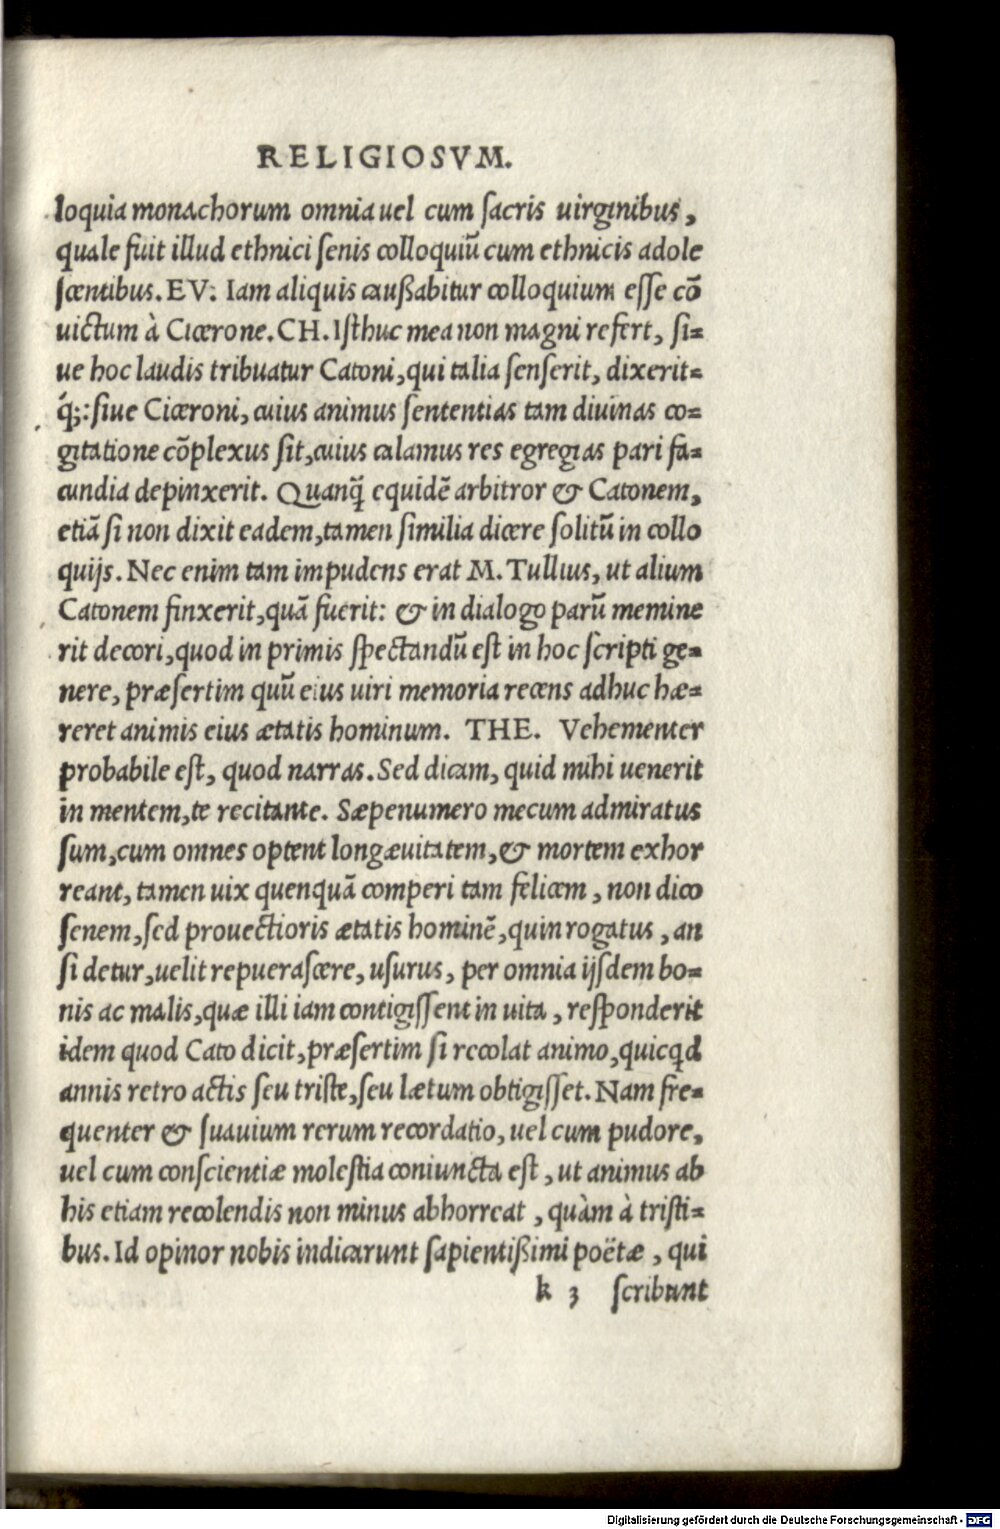 RELIGIOSVM.
loquia monachorum omnia uel cum ſacris uirginibus,
quale fuit illud ethnici ſenis colloquiũ cum ethnicis adole
ſcentibus. EV. Iam aliquis cauſſabitur colloquium eſſe cõ
uictum à Cicerone. CH. Iſthuc mea non magni refert, ſi=
ue hoc laudis tribuatur Catoni, qui talia ſenſerit, dixerit=
q́;: ſiue Ciceroni, cuius animus ſententias tam diuinas co=
gitatione cõplexus ſit, cuius calamus res egregias pari fa=
cundia depinxerit. Quanq̃ equidẽ arbitror & Catonem,
etiã ſi non dixit eadem, tamen ſimilia dicere ſolitũ in collo
quijs. Nec enim tam impudens erat M. Tullius, ut alium
Catonem finxerit, quã fuerit: & in dialogo parũ memine
rit decori, quod in primis ſpectandũ eſt in hoc ſcripti ge=
nere, præſertim quũ eius uiri memoria recens adhuc hæ=
reret animis eius ætatis hominum. THE. Vehementer
probabile eſt, quod narras. Sed dicam, quid mihi uenerit
in mentem, te recitante. Sæpenumero mecum admiratus
ſum, cum omnes optent longæuitatem, & mortem exhor
reant, tamen uix quenquã comperi tam felicem, non dico
ſenem, ſed prouectioris ætatis hominẽ, quin rogatus, an
ſi detur, uelit repueraſcere, uſurus, per omnia ijſdem bo=
nis ac malis, quæ illi iam contigiſſent in uita, reſponderit
idem quod Cato dicit, præſertim ſi recolat animo, quicq̇d
annis retro actis ſeu triſte, ſeu lætum obtigiſſet. Nam fre=
quenter & ſuauium rerum recordatio, uel cum pudore,
uel cum conſcientiæ moleſtia coniuncta eſt, ut animus ab
his etiam recolendis non minus abhorreat, quàm à triſti=
bus. Id opinor nobis indicarunt ſapientißimi poëtæ, qui
k 3 ſcribunt
Digitalisierung gefördert durch die Deutsche Forschungsgemeinschaft - DFG